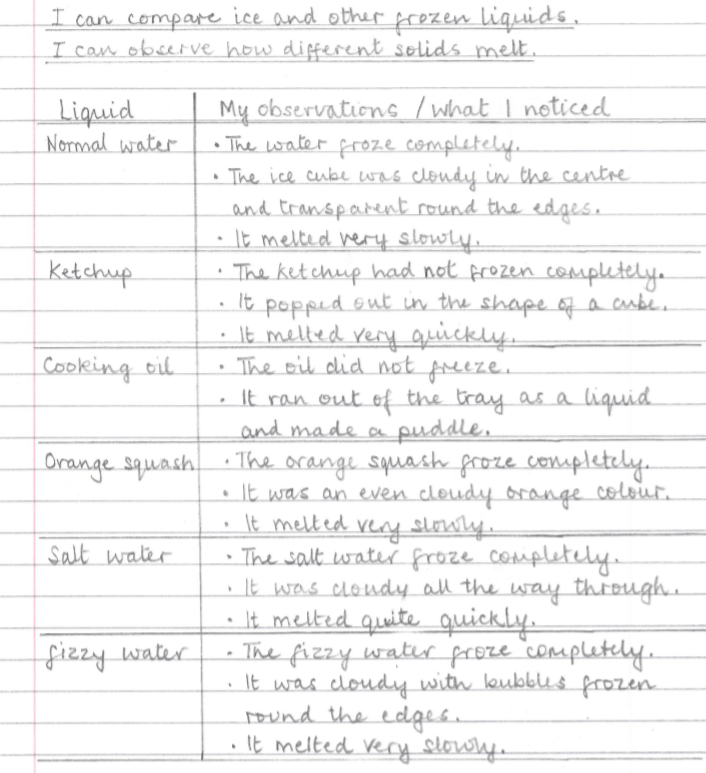 I can compare ice and other frozen liquids.
I can observe how different solids melt.
Liquid My observations / what I noticed
Normal water • The water froze completely.
• The ice cube was cloudy in the centre
and transparent round the edges.
• It melted very slowly.
Ketchup • The ketchup had not frozen completely.
• It popped out in the shape of a cube.
• It melted very quickly.
Cooking oil • The oil did not freeze.
• It ran out of the tray as a liquid
and made a puddle.
Orange squash • The orange squash froze completely.
• It was an even cloudy orange colour.
• It melted very slowly.
Salt water • The salt water froze completely.
• It was cloudy all the way through.
• It melted quite quickly.
fizzy water • The fizzy water froze completely.
• It was cloudy with bubbles frozen
round the edges.
• It melted very slowly.